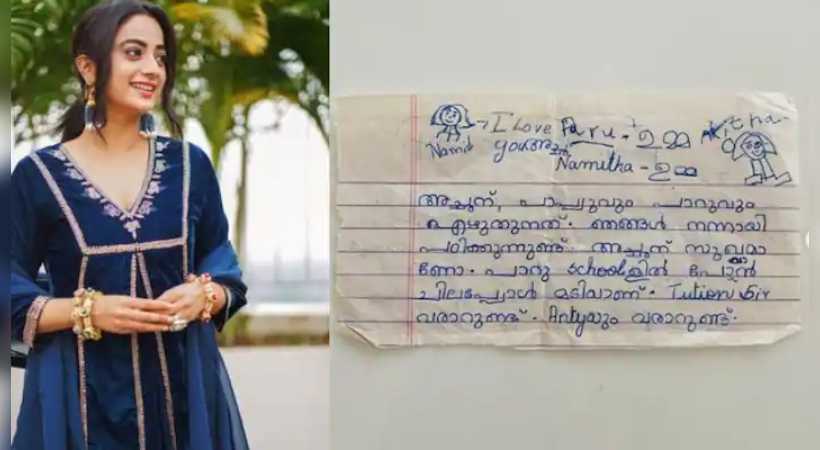 I Love Paru - ഉമ്മ
Namit you അച്ഛൻ Namitha - ഉമ്മ
അച്ഛന്, പാച്ചുവും പാറുവും
എഴുതുന്നത്. ഞങ്ങൾ നന്നായി
പഠിക്കുന്നുണ്ട്. അച്ഛന് സുഖമാ
ണോ. പാറു schoolളിൽ പോവാൻ
ചിലപ്പോൾ മടിവാണ്. Tution Sir
വരാറുണ്ട്. Antyയും വരാറുണ്ട്.